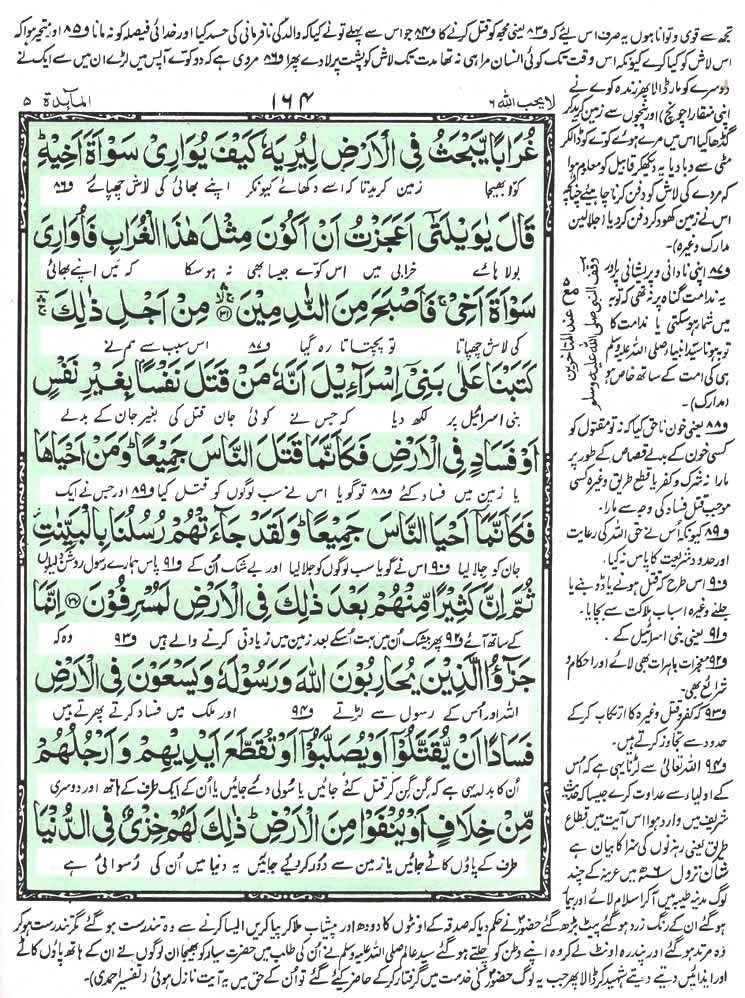 تجھ سے قوی و توانا ہوں یہ صرف اس لیے کہ و۸۳ یعنی مجھ کو قتل کرنے کا و۸۴ جو اس سے پہلے تو نے کیا کہ والد کی نافرمانی کی حسد کیا اور خدائی فیصلہ کو نہ مانا و۸۵ اور متحیر ہوا کہ
اس لاش کو کیا کرے کیونکہ اس وقت تک کوئی انسان مرا ہی نہ تھا مدت تک لاش کو پشت پر لادے پھرا و۸۶ مروی ہے کہ دو کوے آپس میں لڑے ان میں سے ایک نے
دوسرے کو مار ڈالا پھر زندہ کوے نے
اپنی منقار (چونچ) اور پنجوں سے زمین کرید کر
گڑھا کیا اس میں مرے ہوئے کوے کو ڈال کر
مٹی سے دبا دیا یہ دیکھ کر قابیل کو معلوم ہوا
کہ مردے کی لاش کو دفن کرنا چاہیئے چنانچہ
اس نے زمین کھود کر دفن کر دیا (جلالین
مدارک وغیرہ)۔
و۸۷ اپنی نادانی و پریشانی پر اور
یہ ندامت گناہ پر نہ تھی کہ توبہ
میں شمار ہو سکتی یا ندامت کا
توبہ ہونا سید انبیاء صلی اللہ علیہ وسلم
ہی کی امت کے ساتھ خاص ہو
(مدارک)۔
و۸۸ یعنی خون ناحق کیا کہ نہ تو مقتول کو
کسی خون کے بدلے قصاص کے طور پر
مارا نہ شرک و کفر یا قطع طریق وغیرہ کسی
موجب قتل فساد کی وجہ سے مارا۔
و۸۹ کیونکہ اس نے حق اللہ کی رعایت
اور حدود شریعت کا پاس نہ کیا۔
و۹۰ اس طرح کہ قتل ہونے یا ڈوبنے یا
جلنے وغیرہ اسباب ہلاکت سے بچایا۔
و۹۱ یعنی بنی اسرائیل کے۔
و۹۲ معجزات باہرات بھی لائے اور احکام و
شرائع بھی۔
و۹۳ کہ کفر و قتل وغیرہ کا ارتکاب کر کے
حدود سے تجاوز کرتے ہیں۔
و۹۴ اللہ تعالیٰ سے لڑنا یہی ہے کہ اس
کے اولیاء سے عداوت کرے جیسا کہ حدیث
شریف میں وارد ہوا اس آیت میں قطاع
طریق یعنی رہزنوں کی سزا کا بیان ہے
شان نزول ۶ھ میں عرینہ کے چند
لوگ مدینہ طیبہ میں آکر اسلام لائے اور بیمار
لا یحب اللہ ۶
۱۶۴
المآئدۃ ۵
غُرَابًا يَّبْحَثُ فِي الْاَرْضِ لِيُرِيَهٗ كَيْفَ يُوَارِيْ سَوْاَةَ اَخِيْهِ ؕ
کوّا بھیجا زمین کریدتا کہ اسے دکھائے کیونکر اپنے بھائی کی لاش چھپائے و۸۶
قَالَ يٰوَيْلَتٰۤى اَعَجَزْتُ اَنْ اَكُوْنَ مِثْلَ هٰذَا الْغُرَابِ فَاُوَارِيَ
بولا ہائے خرابی میں اس کوے جیسا بھی نہ ہو سکا کہ میں اپنے بھائی
سَوْاَةَ اَخِيْ ۚ فَاَصْبَحَ مِنَ النّٰدِمِيْنَ ﴿۳۱﴾ مِنْ اَجْلِ ذٰلِكَ ۛ
کی لاش چھپاتا تو پچتاتا رہ گیا و۸۷ اس سبب سے ہم نے
كَتَبْنَا عَلٰى بَنِيْۤ اِسْرَآءِيْلَ اَنَّهٗ مَنْ قَتَلَ نَفْسًۢا بِغَيْرِ نَفْسٍ
بنی اسرائیل پر لکھ دیا کہ جس نے کوئی جان قتل کی بغیر جان کے بدلے
اَوْ فَسَادٍ فِي الْاَرْضِ فَكَاَنَّمَا قَتَلَ النَّاسَ جَمِيْعًا ؕ وَمَنْ اَحْيَاهَا
یا زمین میں فساد کئے و۸۸ تو گویا اس نے سب لوگوں کو قتل کیا و۸۹ اور جس نے ایک
فَكَاَنَّمَاۤ اَحْيَا النَّاسَ جَمِيْعًا ؕ وَلَقَدْ جَآءَتْهُمْ رُسُلُنَا بِالْبَيِّنٰتِ
جان کو جِلا لیا و۹۰ اس نے گویا سب لوگوں کو جلا لیا اور بے شک ان کے و۹۱ پاس ہمارے رسول روشن دلیلوں
ثُمَّ اِنَّ كَثِيْرًا مِّنْهُمْ بَعْدَ ذٰلِكَ فِي الْاَرْضِ لَمُسْرِفُوْنَ ﴿۳۲﴾ اِنَّمَا
کے ساتھ آئے و۹۲ پھر بیشک ان میں بہت اس کے بعد زمین میں زیادتی کرنے والے ہیں و۹۳ وہ کہ
جَزٰٓؤُا الَّذِيْنَ يُحَارِبُوْنَ اللّٰهَ وَرَسُوْلَهٗ وَيَسْعَوْنَ فِي الْاَرْضِ
اللہ اور اس کے رسول سے لڑتے و۹۴ اور ملک میں فساد کرتے پھرتے ہیں
فَسَادًا اَنْ يُّقَتَّلُوْۤا اَوْ يُصَلَّبُوْۤا اَوْ تُقَطَّعَ اَيْدِيْهِمْ وَاَرْجُلُهُمْ
ان کا بدلہ یہی ہے کہ گن گن کر قتل کئے جائیں یا سولی دئیے جائیں یا ان کے ایک طرف کے ہاتھ اور دوسری
مِّنْ خِلَافٍ اَوْ يُنْفَوْا مِنَ الْاَرْضِ ؕ ذٰلِكَ لَهُمْ خِزْيٌ فِي الدُّنْيَا
طرف کے پاؤں کاٹے جائیں یا زمین سے دور کر دئیے جائیں یہ دنیا میں ان کی رسوائی ہے
مع عند المتأخرین
وقف النبی صلی اللہ علیہ وسلم
ہو گئے ان کے رنگ زرد ہو گئے پیٹ بڑھ گئے حضور نے حکم دیا کہ صدقہ کے اونٹوں کا دودھ اور پیشاب ملا کر پیا کریں ایسا کرنے سے وہ تندرست ہو گئے مگر تندرست ہو کر
وہ مرتد ہو گئے اور پندرہ اونٹ لے کر وہ اپنے وطن کو چلتے ہو گئے سید عالم صلی اللہ علیہ وسلم نے ان کی طلب میں حضرت یسار کو بھیجا ان لوگوں نے ان کے ہاتھ پاؤں کاٹے
اور ایذائیں دیتے دیتے شہید کر ڈالا پھر جب یہ لوگ حضور کی خدمت میں گرفتار کر کے حاضر کیے گئے تو ان کے حق میں یہ آیت نازل ہوئی (تفسیر احمدی)۔